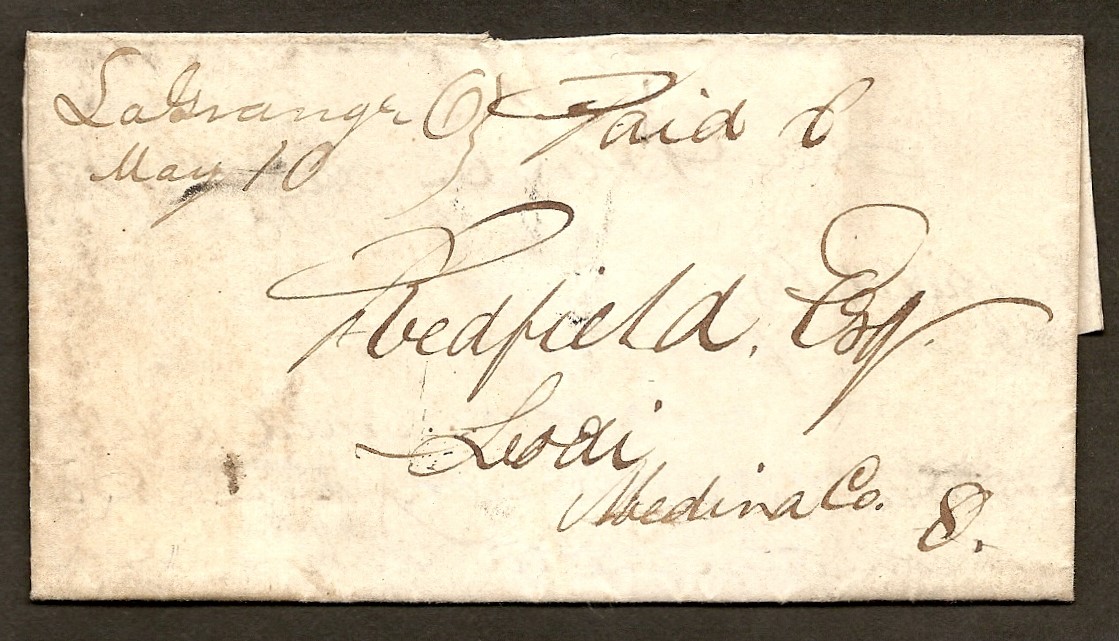 LaGrange O} Paid 6
May 10
Redfield, Esq.
Lodi
Medina Co.
8.